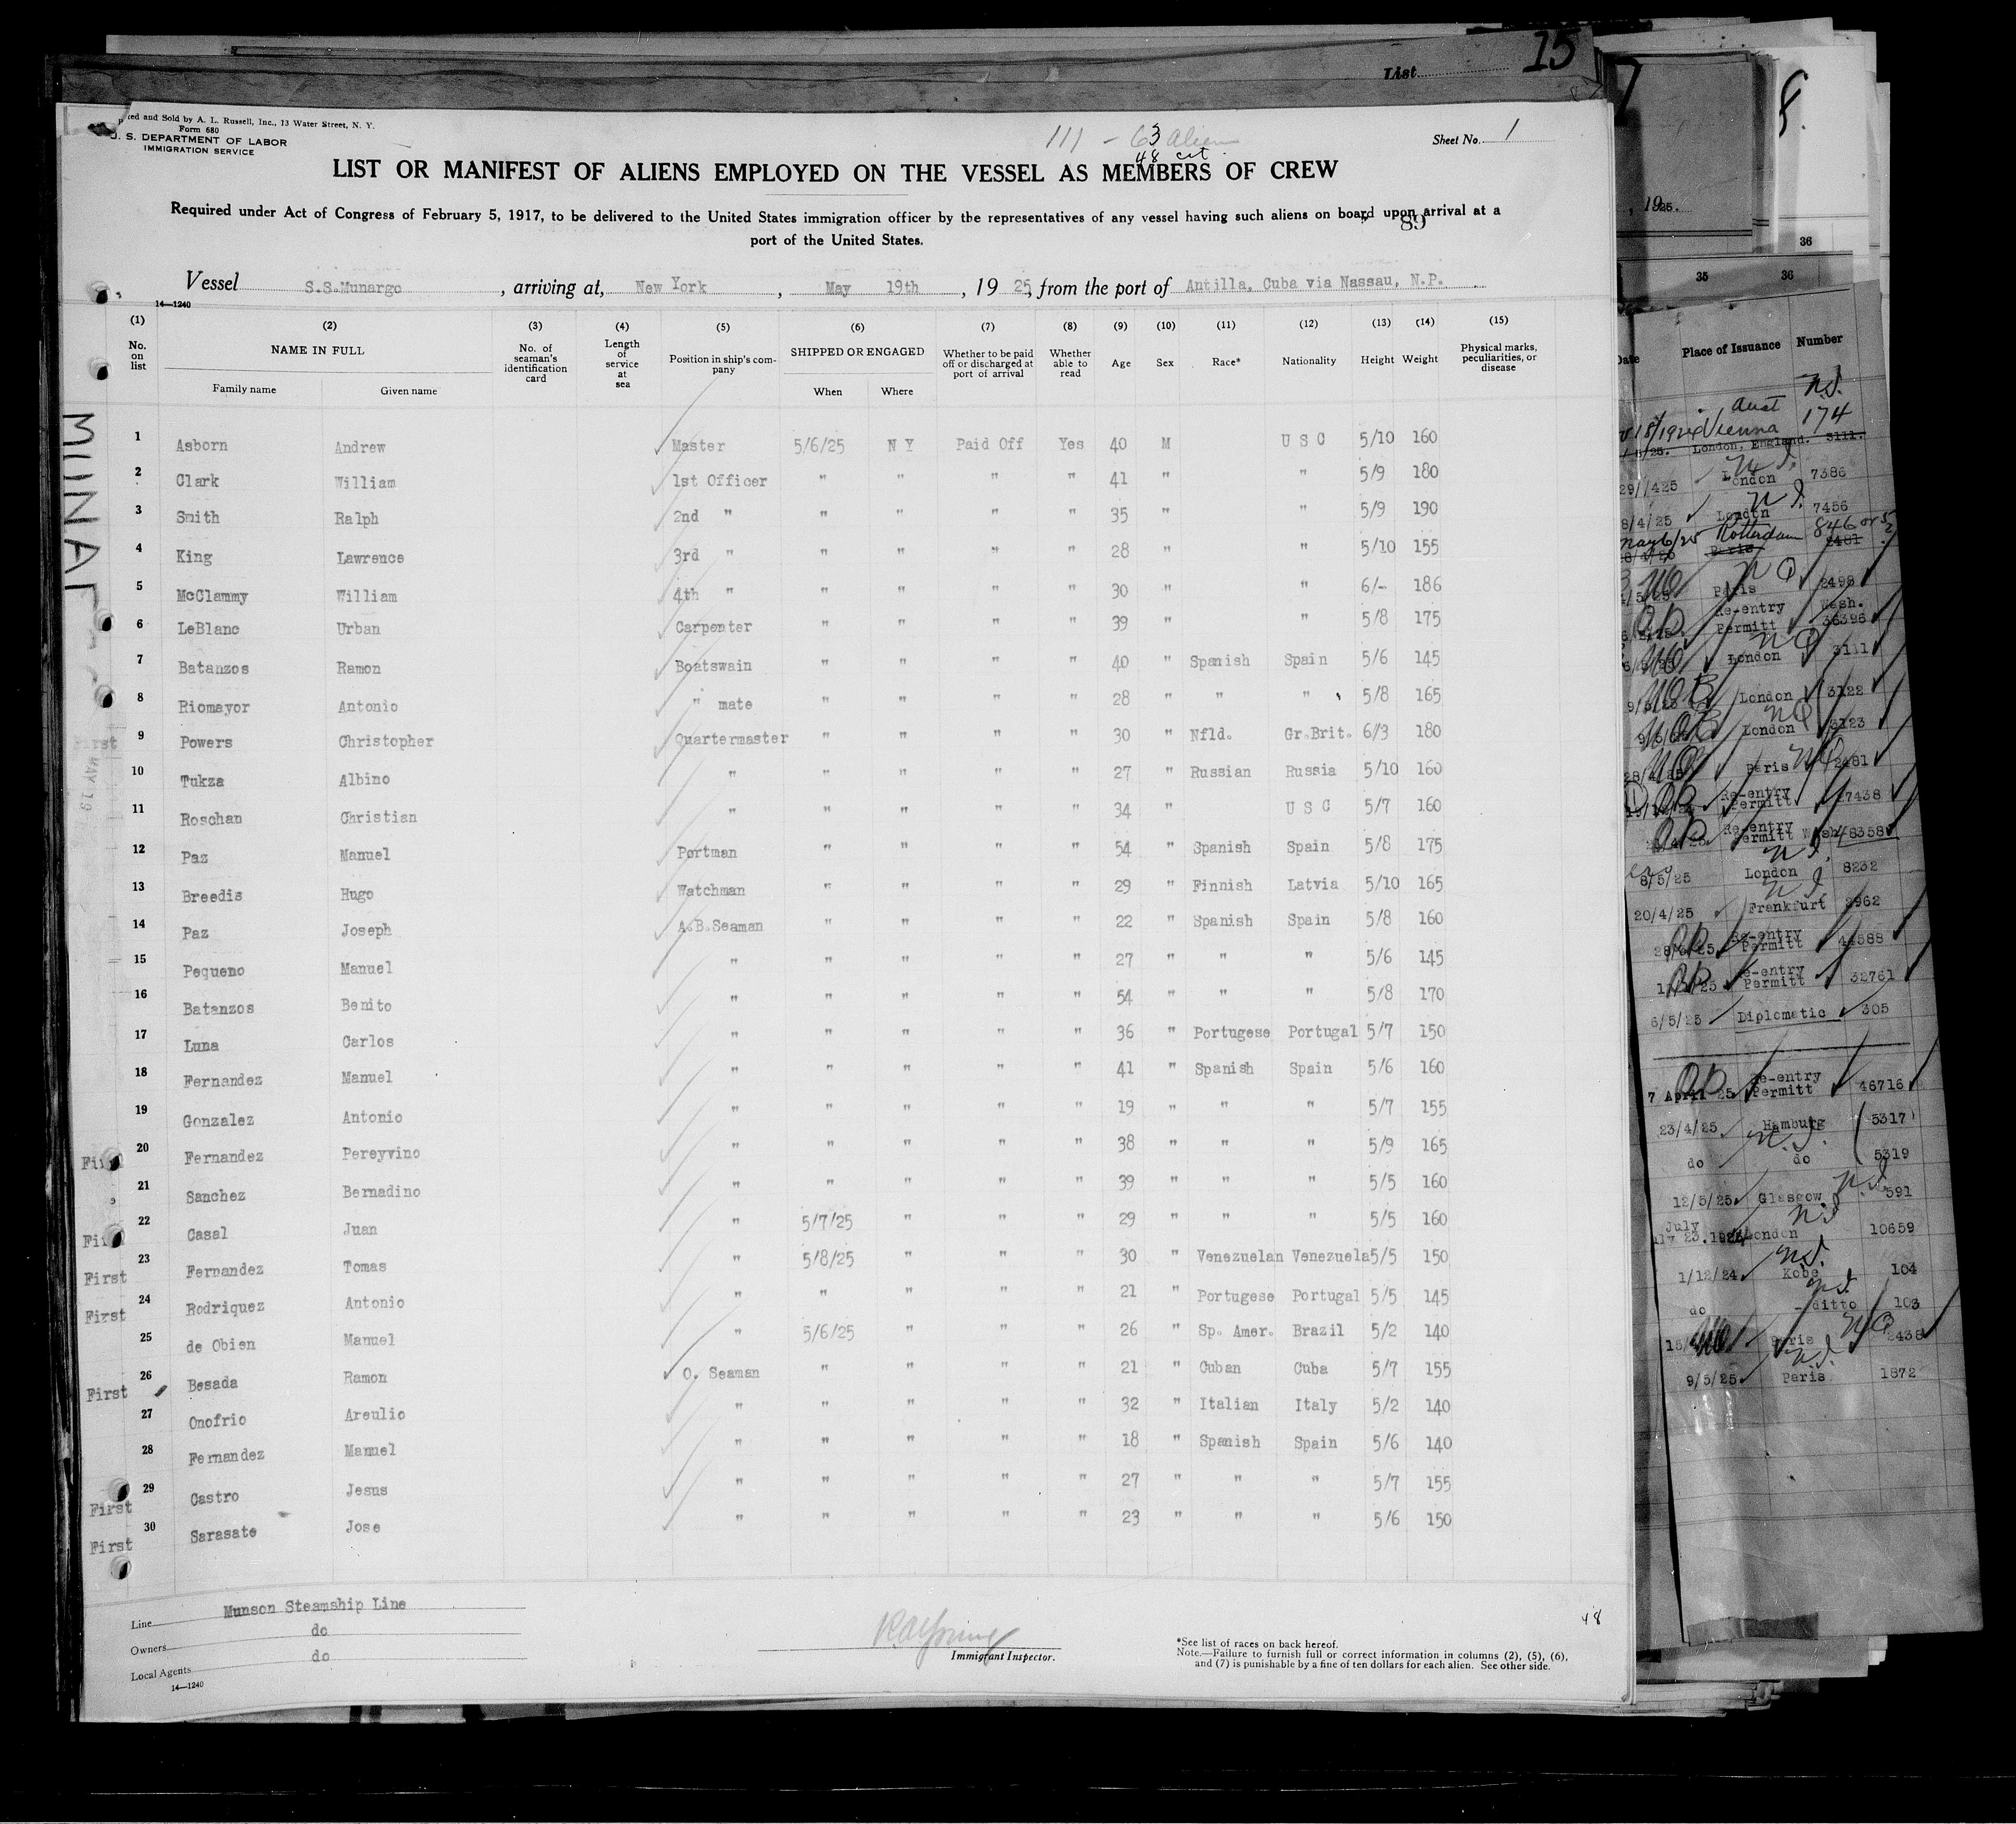 List 15
ted and Sold by A. L. Russell, Inc., 13 Water Street, N. Y.
Form 680
U. S. DEPARTMENT OF LABOR
IMMIGRATION SERVICE
111 - 63 alien
48 cit.
Sheet No. 1
LIST OR MANIFEST OF ALIENS EMPLOYED ON THE VESSEL AS MEMBERS OF CREW
Required under Act of Congress of February 5, 1917, to be delivered to the United States immigration officer by the representatives of any vessel having such aliens on board upon arrival at a
port of the United States.
89
Vessel S.S.Munargo, arriving at, New York, May 19th, 1925, from the port of Antilla, Cuba via Nassau, N.P.
14—1240
(1) (2) (3) (4) (5) (6) (7) (8) (9) (10) (11) (12) (13) (14) (15)
No. on list
NAME IN FULL
Family name
Given name
No. of seaman's identification card
Length of service at sea
Position in ship's company
SHIPPED OR ENGAGED
When
Where
Whether to be paid off or discharged at port of arrival
Whether able to read
Age
Sex
Race*
Nationality
Height
Weight
Physical marks, peculiarities, or disease
MUNAR
1 Asborn Andrew Master 5/6/25 N Y Paid Off Yes 40 M U S C 5/10 160
2 Clark William 1st Officer " " " " 41 " " 5/9 180
3 Smith Ralph 2nd " " " " " 35 " " 5/9 190
4 King Lawrence 3rd " " " " " 28 " " 5/10 155
5 McClammy William 4th " " " " " 30 " " 6/- 186
6 LeBlanc Urban Carpenter " " " " 39 " " 5/8 175
7 Batanzos Ramon Boatswain " " " " 40 " Spanish Spain 5/6 145
8 Riomayor Antonio " mate " " " " 28 " " " 5/8 165
First 9 Powers Christopher Quartermaster " " " " 30 " Nfld. Gr.Brit. 6/3 180
10 Tukza Albino " " " " " 27 " Russian Russia 5/10 160
11 Roschan Christian " " " " " 34 " U S C 5/7 160
12 Paz Manuel Portman " " " " 54 " Spanish Spain 5/8 175
13 Breedis Hugo Watchman " " " " 29 " Finnish Latvia 5/10 165
14 Paz Joseph A.B.Seaman " " " " 22 " Spanish Spain 5/8 160
15 Pequeno Manuel " " " " " 27 " " " 5/6 145
16 Batanzos Benito " " " " " 54 " " " 5/8 170
17 Luna Carlos " " " " " 36 " Portugese Portugal 5/7 150
18 Fernandez Manuel " " " " " 41 " Spanish Spain 5/6 160
19 Gonzalez Antonio " " " " " 19 " " " 5/7 155
20 Fernandez Pereyvino " " " " " 38 " " " 5/9 165
21 Sanchez Bernadino " " " " " 39 " " " 5/5 160
22 Casal Juan " 5/7/25 " " " 29 " " " 5/5 160
First 23 Fernandez Tomas " 5/8/25 " " " 30 " Venezuelan Venezuela 5/5 150
First 24 Rodriquez Antonio " " " " " 21 " Portugese Portugal 5/5 145
25 de Obien Manuel " 5/6/25 " " " 26 " Sp. Amer. Brazil 5/2 140
First 26 Besada Ramon O. Seaman " " " " 21 " Cuban Cuba 5/7 155
27 Onofrio Areulio " " " " " 32 " Italian Italy 5/2 140
28 Fernandez Manuel " " " " " 18 " Spanish Spain 5/6 140
First 29 Castro Jesus " " " " " 27 " " " 5/7 155
First 30 Sarasate Jose " " " " " 23 " " " 5/6 150
Line Munson Steamship Line
Owners do
Local Agents do
14—1240
Immigrant Inspector.
48
*See list of races on back hereof.
Note.—Failure to furnish full or correct information in columns (2), (5), (6),
and (7) is punishable by a fine of ten dollars for each alien. See other side.
, 1925.
36
35 36
Date Place of Issuance Number
Vienna 174
London, England. 3111.
London 7386
8/4/25 London 7456
May 6/25 Rotterdam 846
Paris 2481
Paris 2498
Re-entry Permitt Wash. 36396
London 3111
London 3122
London 3123
Paris 2481
Re-entry Permitt 27438
Re-entry Permitt Wash 8358
8/5/25 London 8232
20/4/25 Frankfurt 2962
Re-entry Permitt 44588
Re-entry Permitt 32761
6/5/25 Diplomatic 305
7 April 25 Re-entry Permitt 46716
23/4/25 Hamburg 5317
do do 5319
12/5/25 Glasgow 591
July 23, London 10659
1/12/24 Kobe 104
do ditto 103
Paris 2438
9/5/25 Paris 1872